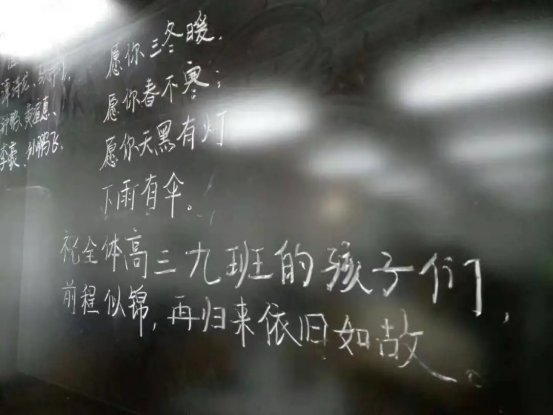 愿你三冬暖,
愿你春不寒;
愿你天黑有灯
下雨有伞。
祝全体高三九班的孩子们,
前程似锦,再归来依旧如故。